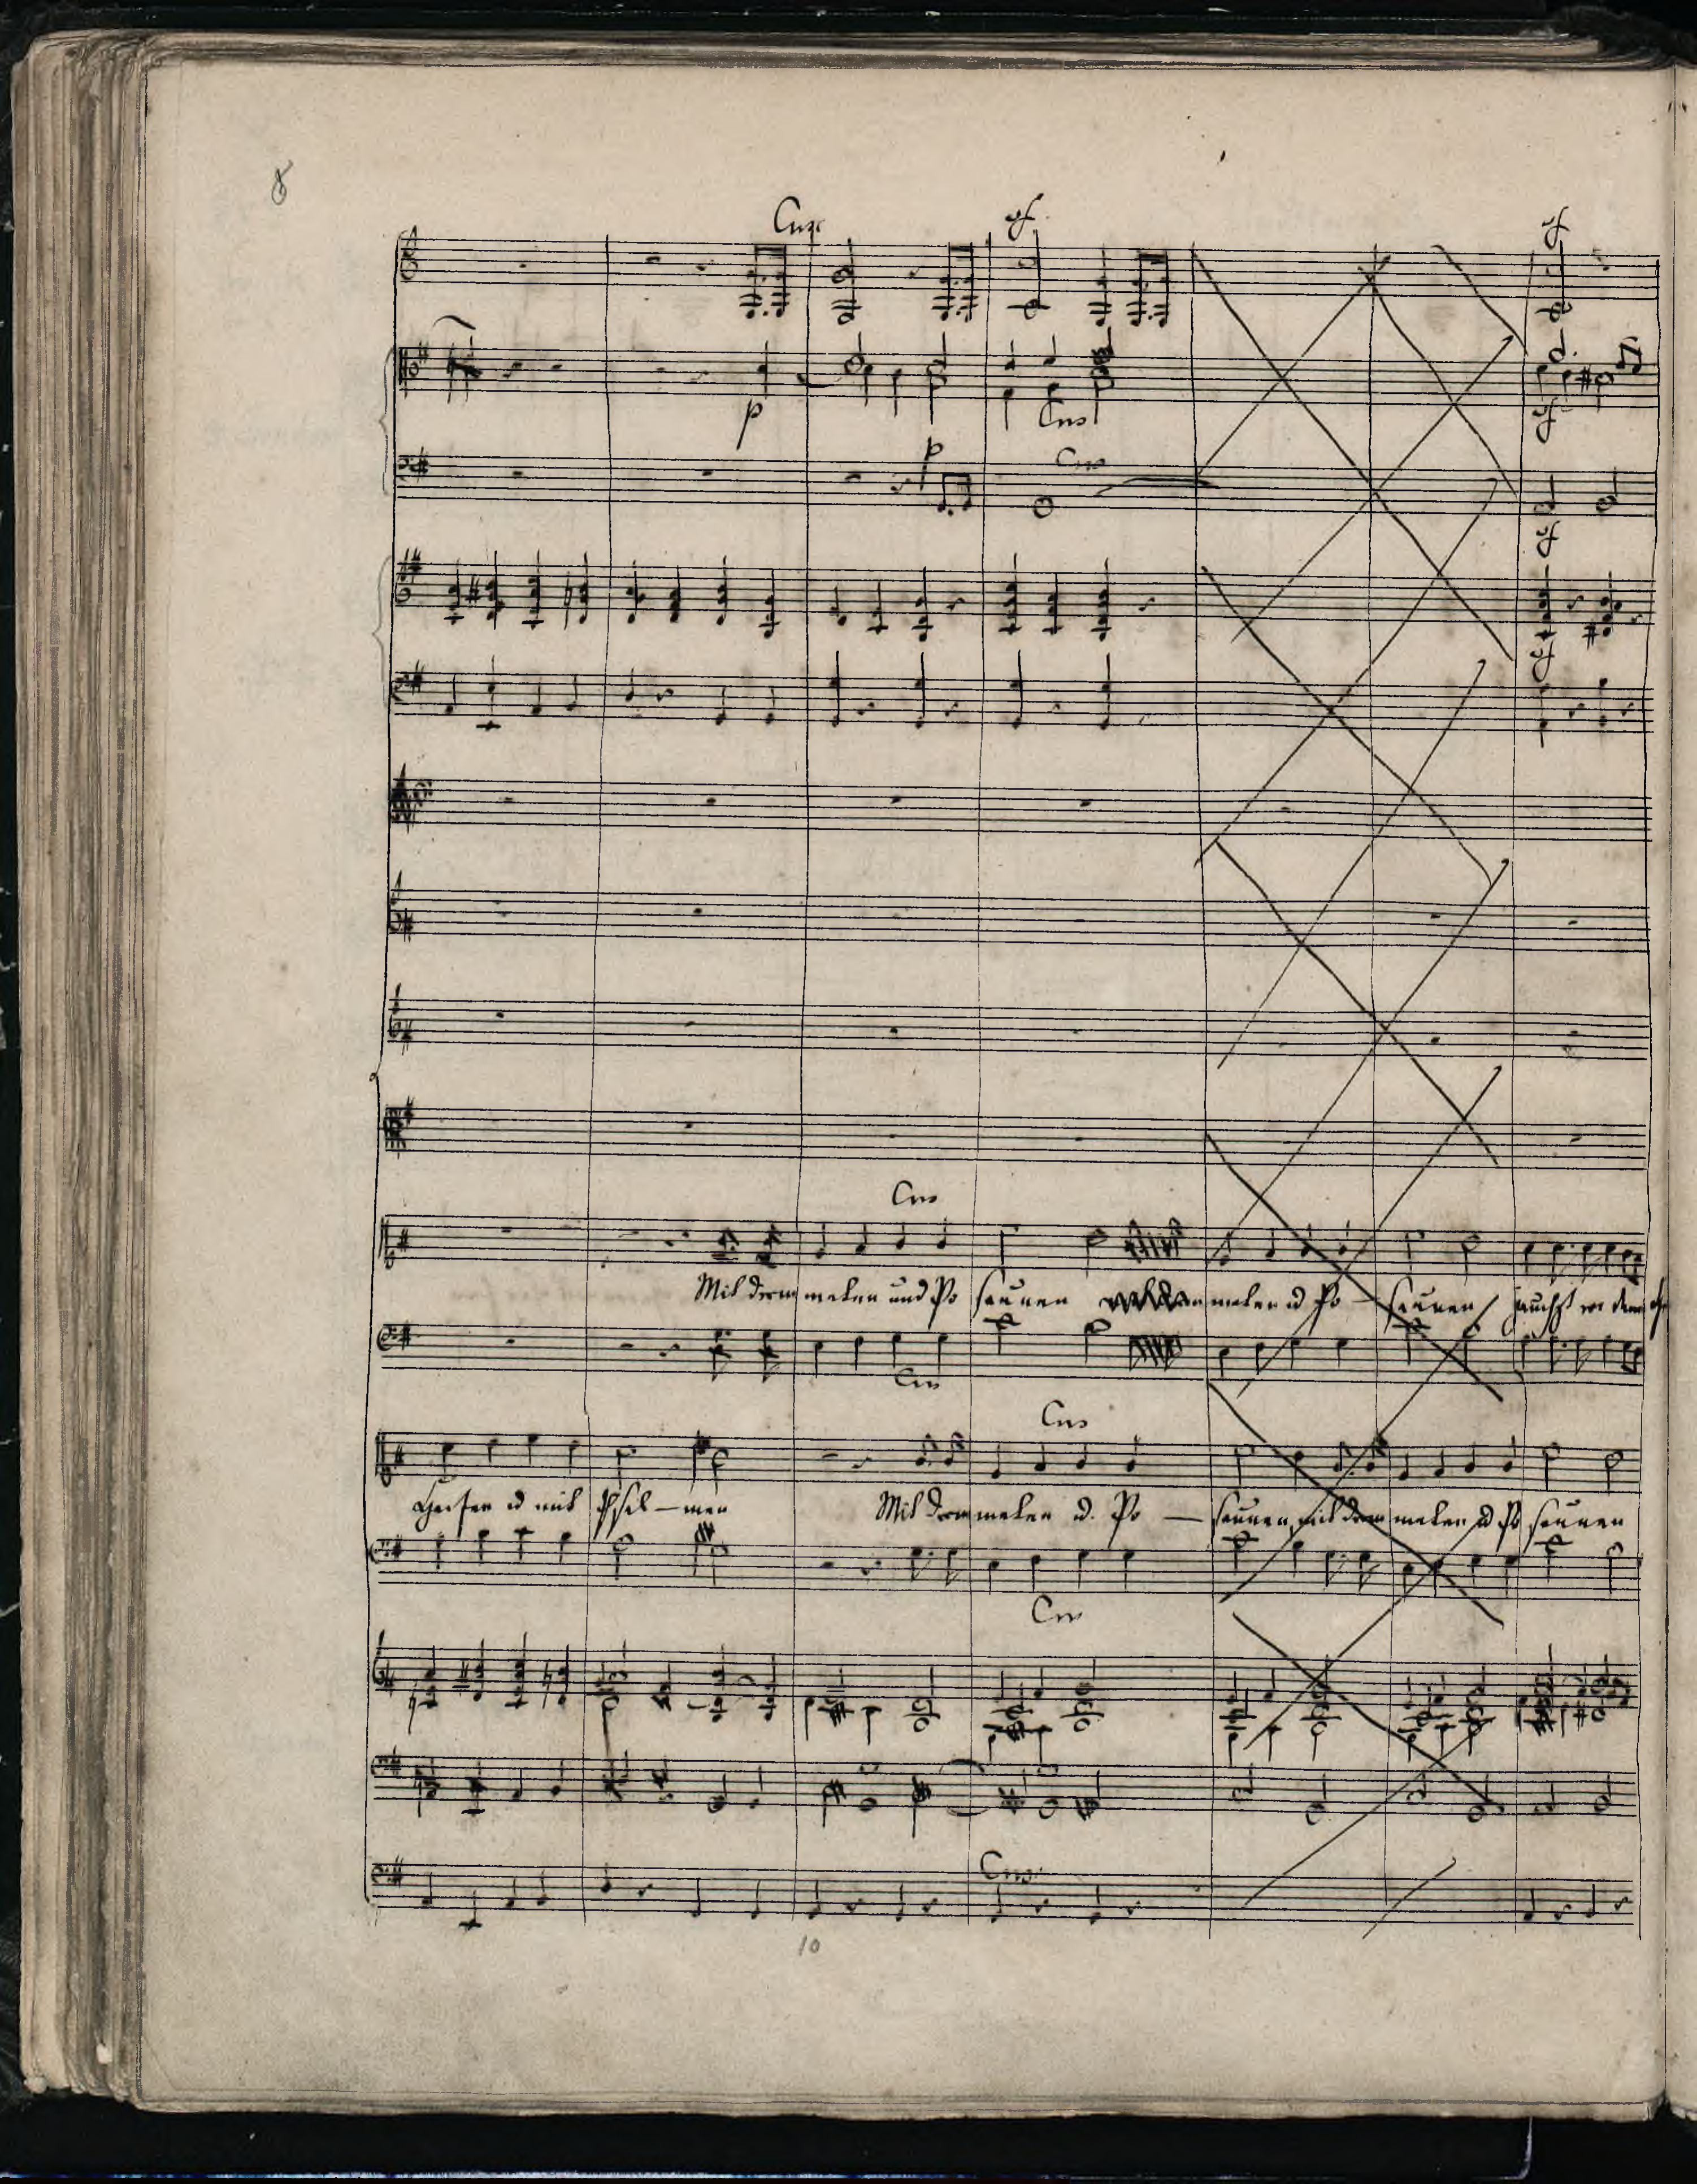 8
Cres
sf
sf
p
Cres
sf
p
Cres
sf
sf
Cres
Mit Drommeten und Po saunen meten u Po — saunen jauchzt vor dem
Cres
Cres
Harfen u mit Psal — men Mit Drommeten u. Po — saunen, mit Drommeten u Po saunen
Cres
Cres
10